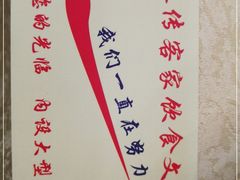 传客家饮食文
我们一直在努力
的光临 内设大型